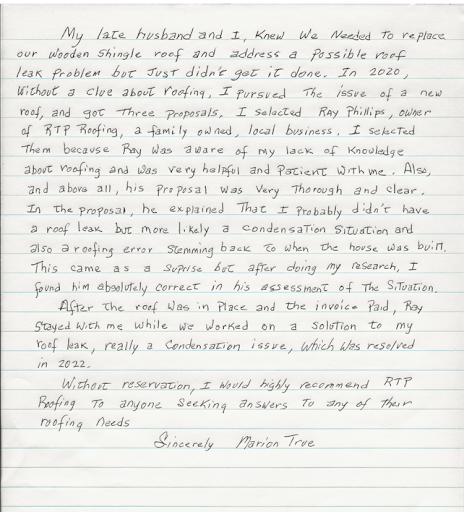 My late husband and I, knew we needed to replace
our wooden shingle roof and address a possible roof
leak problem but just didn't get it done. In 2020,
without a clue about roofing, I pursued the issue of a new
roof, and got three proposals. I selected Ray Phillips, owner
of RTP Roofing, a family owned, local business. I selected
them because Ray was aware of my lack of knowledge
about roofing and was very helpful and patient with me. Also,
and above all, his proposal was very thorough and clear.
In the proposal, he explained that I probably didn't have
a roof leak but more likely a condensation situation and
also a roofing error stemming back to when the house was built.
This came as a suprise but after doing my research, I
found him absolutely correct in his assessment of the situation.
After the roof was in place and the invoice paid, Ray
stayed with me while we worked on a solution to my
roof leak, really a condensation issue, which was resolved
in 2022.
Without reservation, I would highly recommend RTP
Roofing to anyone seeking answers to any of their
roofing needs
Sincerely Marion True